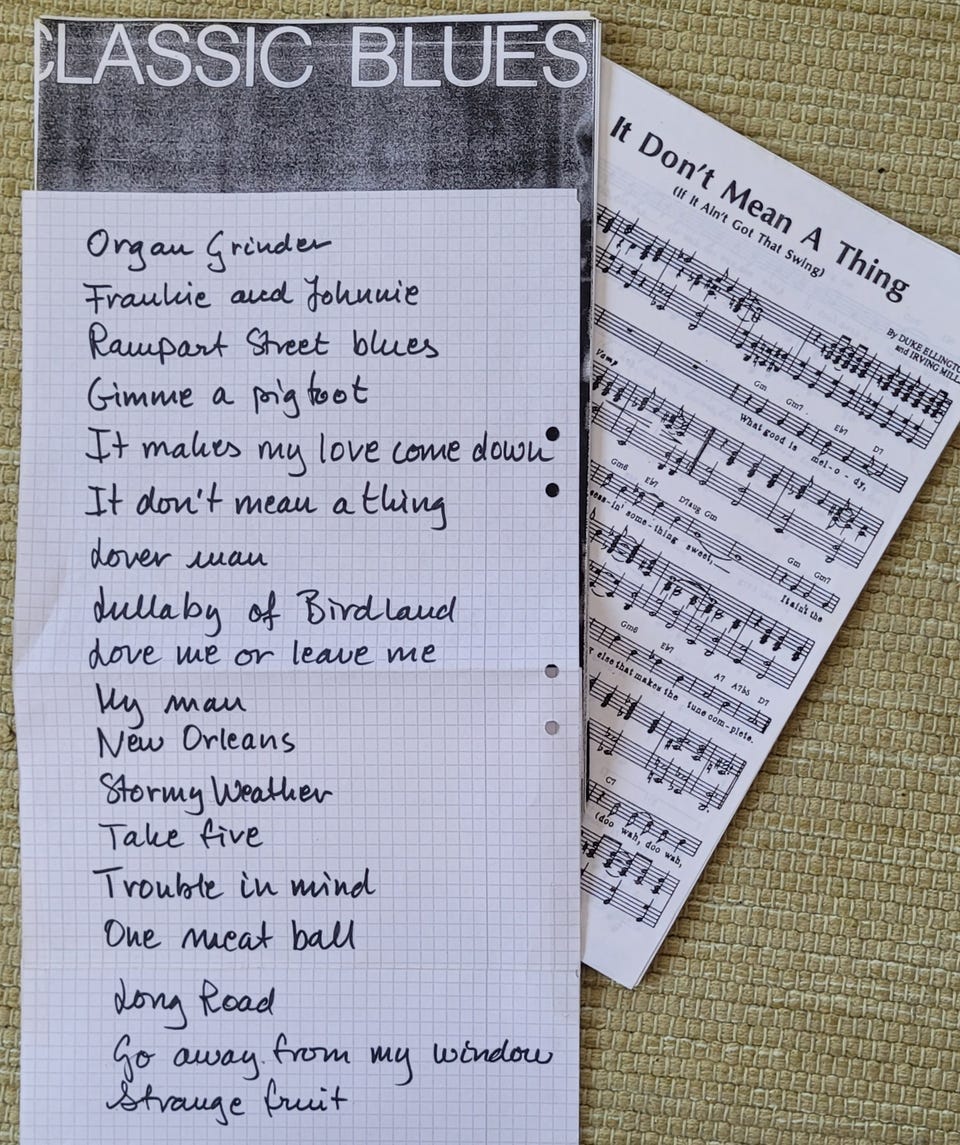 CLASSIC BLUES
Organ Grinder
Frankie and Johnnie
Rampart Street blues
Gimme a pig foot
It makes my love come down
It don't mean a thing
Lover man
Lullaby of Birdland
Love me or leave me
My man
New Orleans
Stormy Weather
Take five
Trouble in mind
One meat ball
Long Road
Go away from my window
Strange fruit
It Don't Mean A Thing
(If It Ain't Got That Swing)
By DUKE ELLINGTO
and IRVING MILL
Vamp
Gm Gm7 Eb7 D7
What good is mel-o-dy,
Gm6 Eb7 D7aug Gm Gm Gm7
sess-in' some-thing sweet, It ain't the
Gm6 Eb7 A7 A7b5 D7
else that makes the tune com-plete.
C7
(doo wah, doo wah,